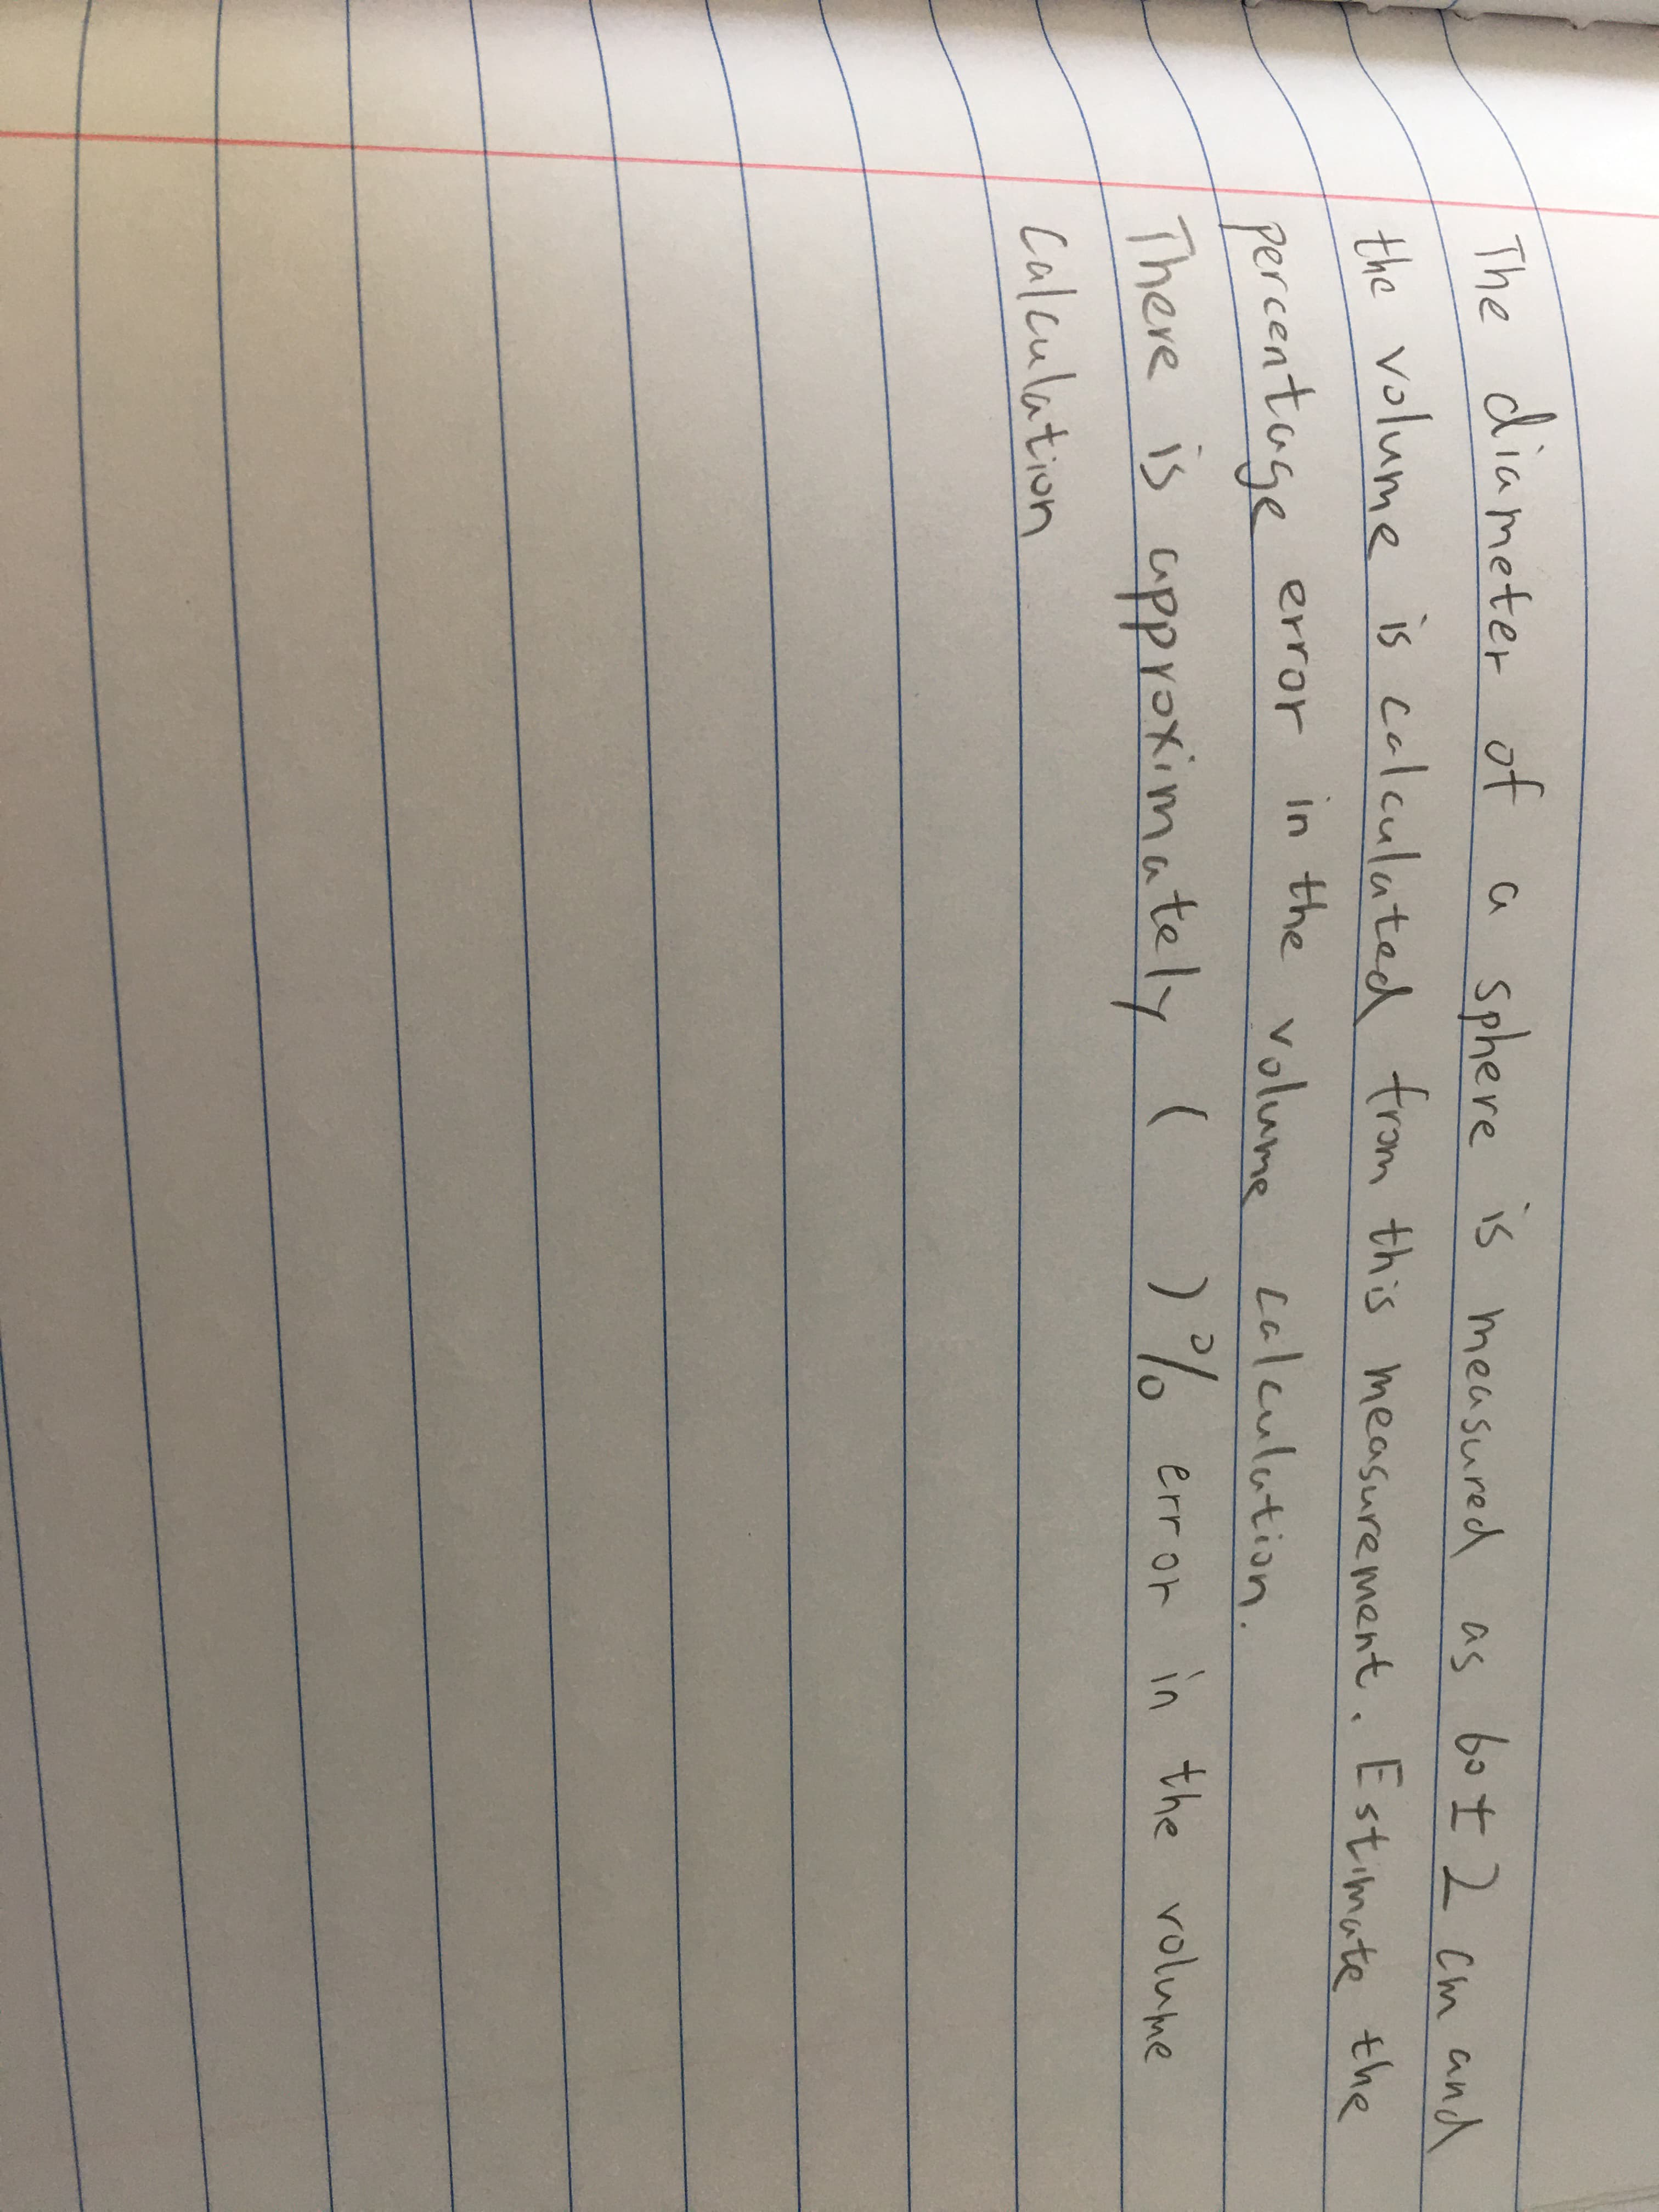 The diameter of a sphere is measured as 60 ± 2 cm and
the volume is calculated from this measurement. Estimate the
percentage error in the volume calculation.
There is approximately (    )% error in the volume
calculation